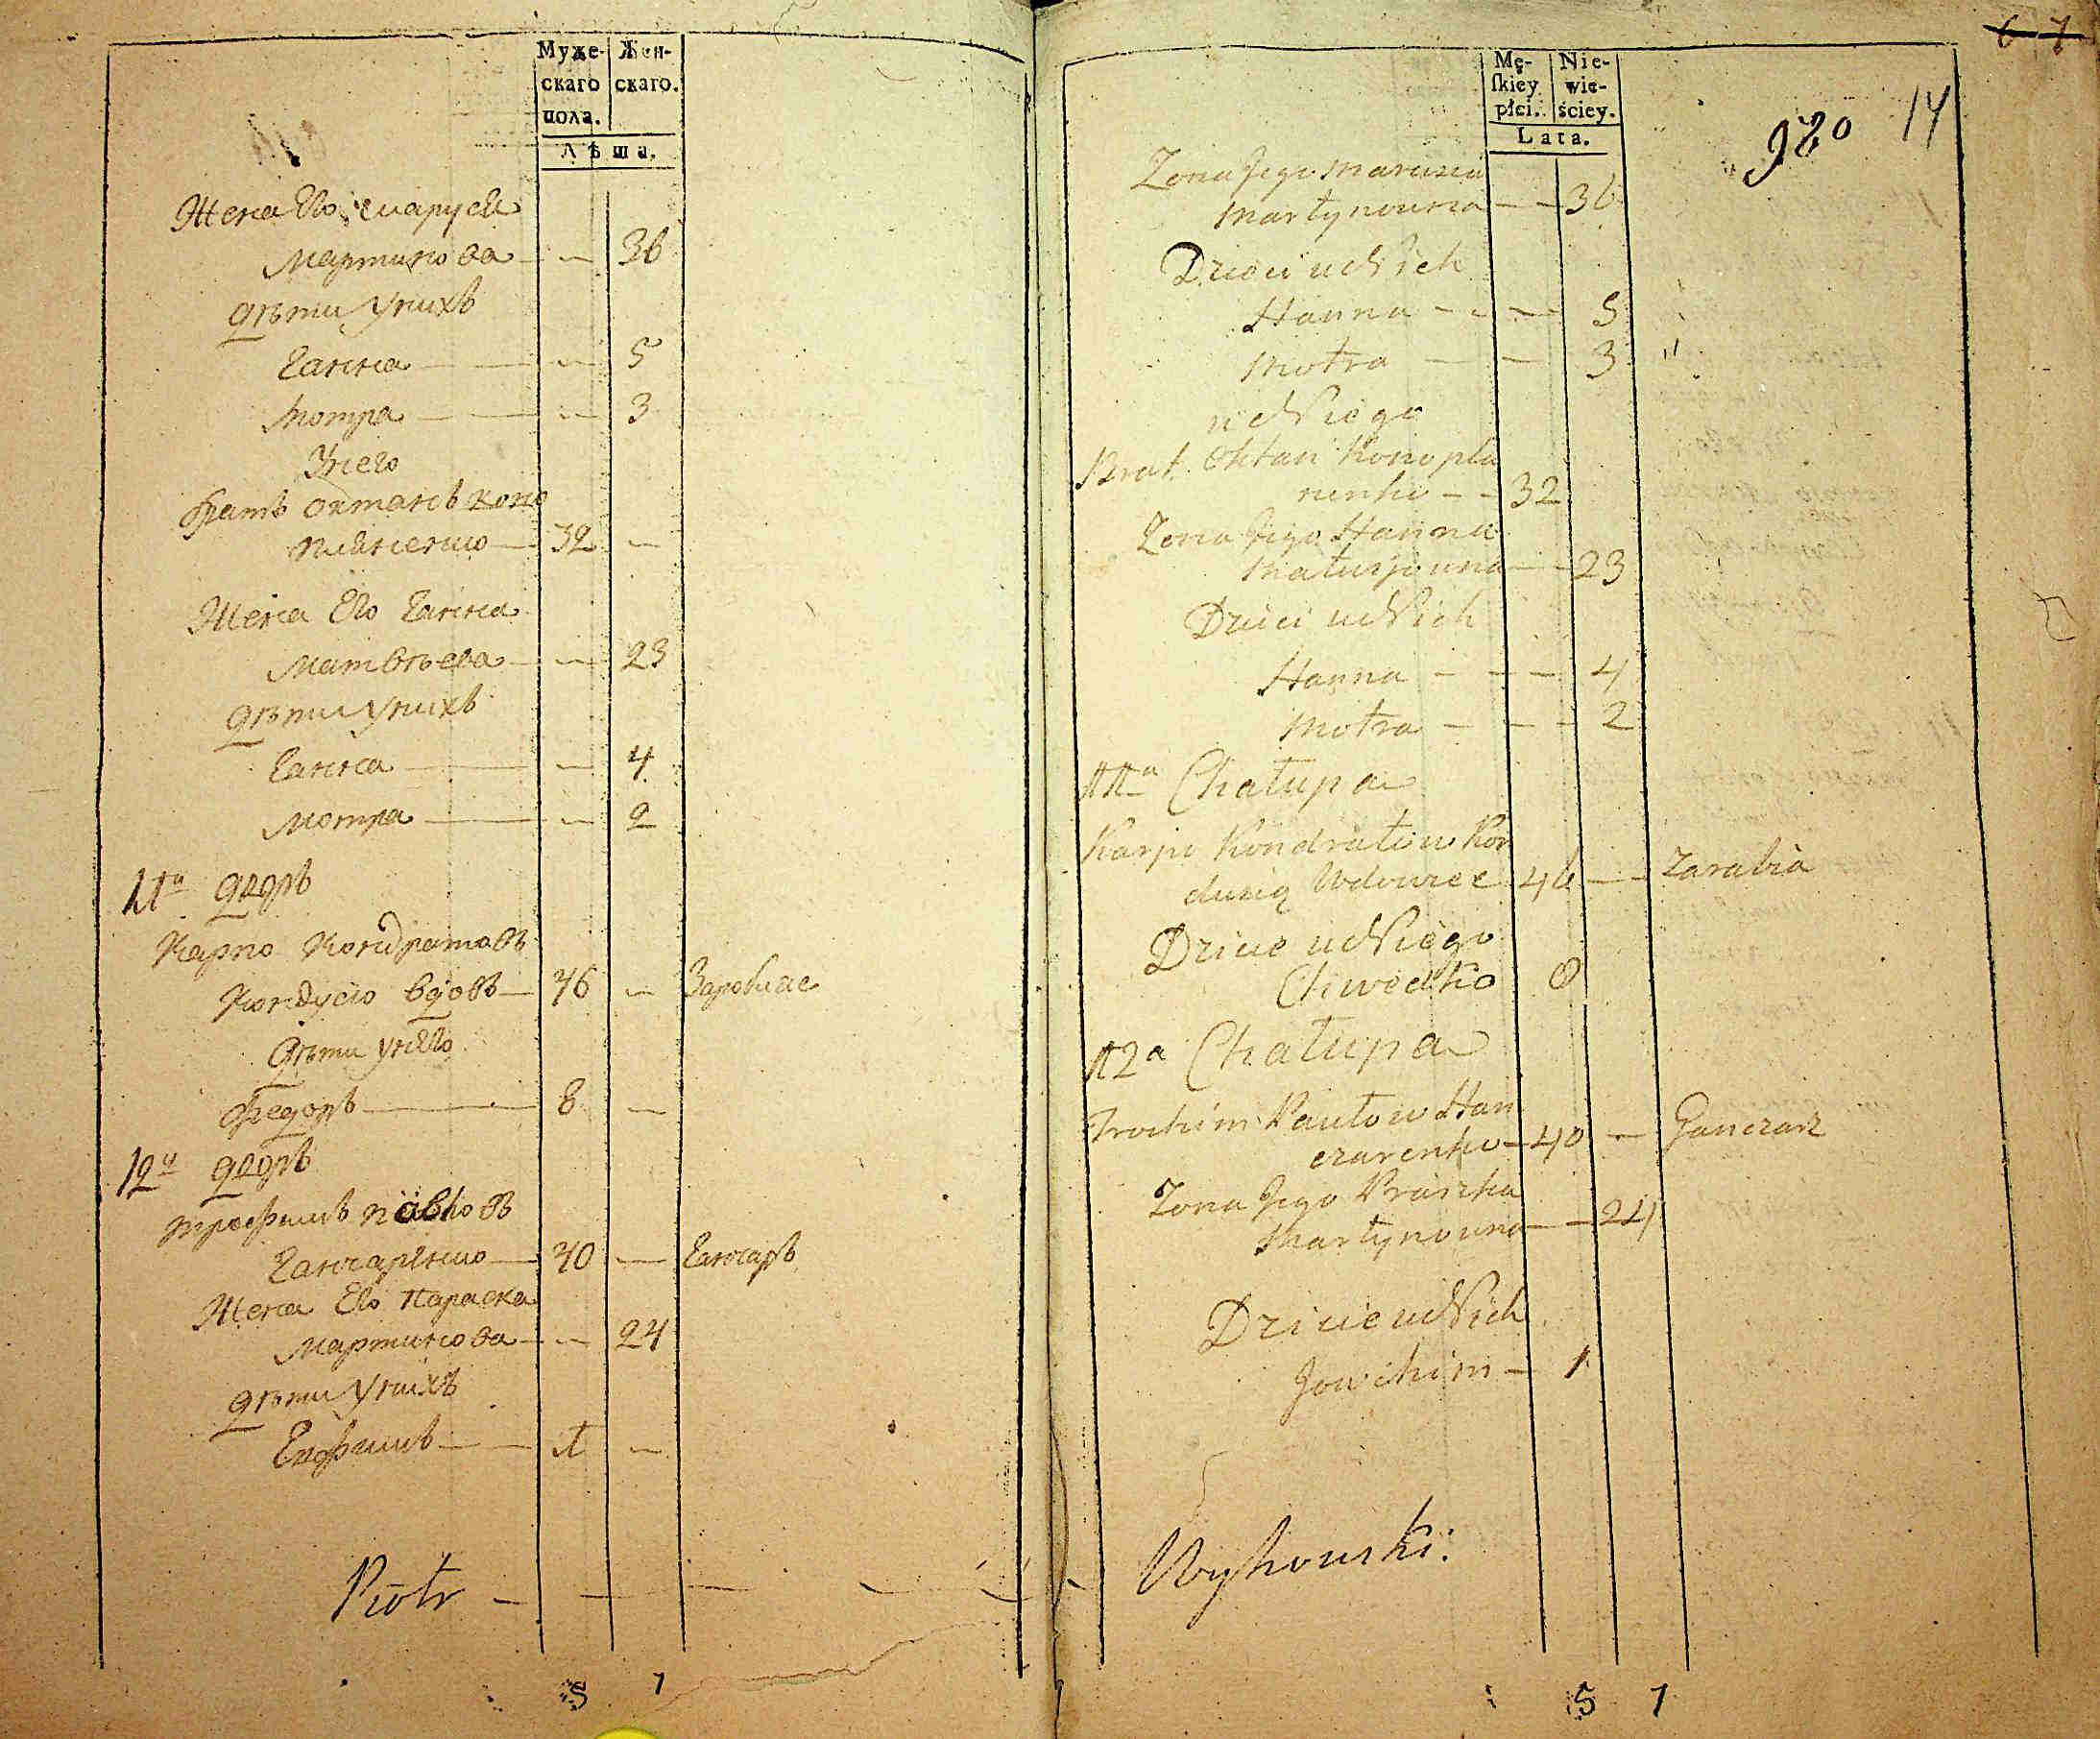 Муже-
скаго
пола.
Жен-
скаго.
Лѣта.
Жена Его Маруся
Мартинова — 36
Дѣти у нихъ
Ганна — 5
Мотра — 3
У него
братъ Охтанъ Коно
пляненко — 32 —
Жена Его Ганна
Матвѣева — 23
Дѣти у нихъ
Ганна — 4
Мотра — 2
11й дворъ
Карпо Кондратовъ
Кондусю вдовъ — 46 —
Дѣти у него
Федоръ — 8 —
12й дворъ
Трофимъ Павловъ
Ганчаренко — 40 — Ганчаръ
Жена Его Параска
Мартинова — 24
Дѣти у нихъ
— 1 —
Piotr —
5 7
6 7
Mę-
ſkiey
płci.
Nie-
wie-
ściey.
Lata.
920 14
Zona Jego Marusia
Martynowna — — 36
Dzieci u Nich
Hanna — — — 5
Motra — — 3
u Niego
Brat Ohtan Konopla
nenko — — 32
Zona Jego Hanna
Matwijowna — — 23
Dzieci u Nich
Hanna — — — 4
Motra — — — 2
11a Chałupa
Karpo Kondratow Kon
dusią Wdowiec 46 — — Zarabia
Dziecie u Niego
Chwedko 8
12a Chałupa
Trochim Pawłow Han
czarenko — 40 — Ganczarz
Zona Jego Praszka
Martynowna — — 24
Dziecie u Nich
Jowchim — 1
Wyhowski.
5 7